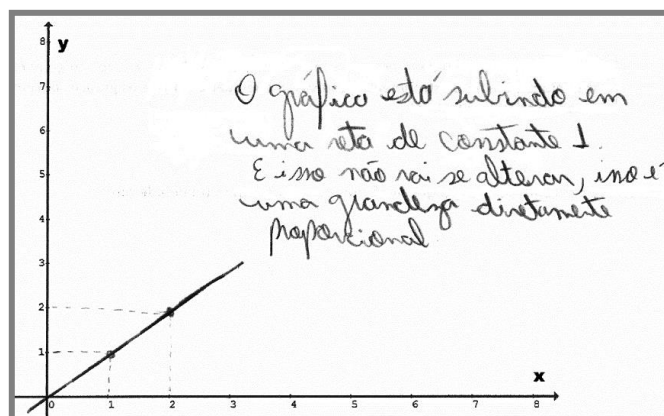 8
y
7
6
5
4
3
2
1
0 1 2 3 4 5 6 7 8
x
O gráfico está subindo em
uma reta de constante 1.
E isso não vai se alterar, isso é
uma grandeza diretamente
proporcional